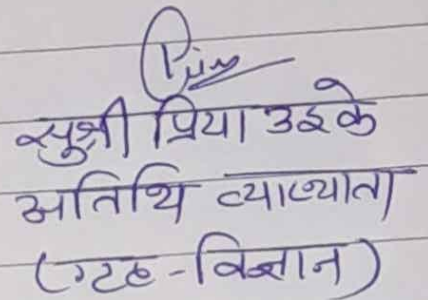 सुश्री प्रिया उइके
अतिथि व्याख्याता
(गृह-विज्ञान)